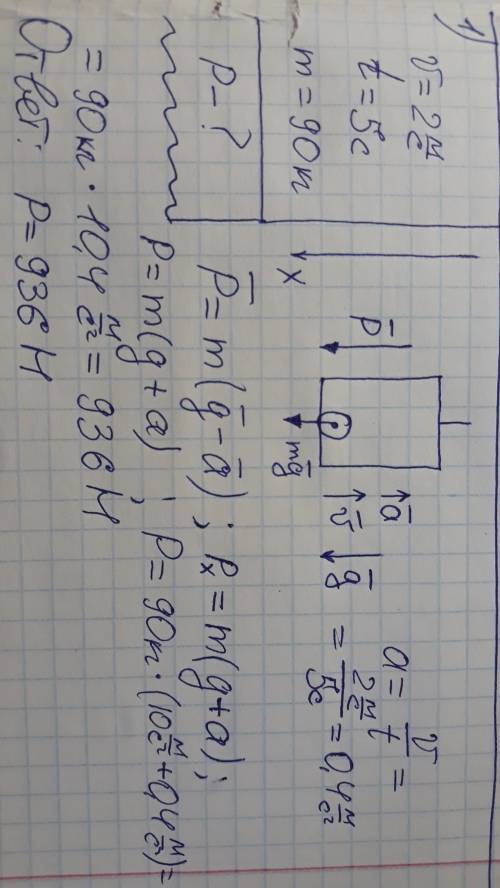 1)
v = 2 м/с
t = 5с
m = 90кг
P - ?
x
P̅
mg̅
a̅
v̅
g̅
a = v/t =
= 2 м/с / 5с = 0,4 м/с²
P̅ = m(g̅ - a̅); Pₓ = m(g + a);
P = m(g + a); P = 90кг · (10 м/с² + 0,4 м/с²) =
= 90кг · 10,4 м/с² = 936 Н
Ответ: P = 936 Н